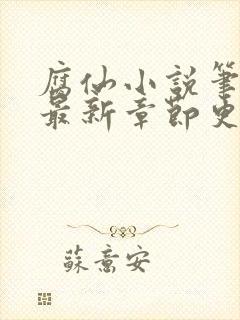 腐仙小說筆
最新章節史
蘇意安